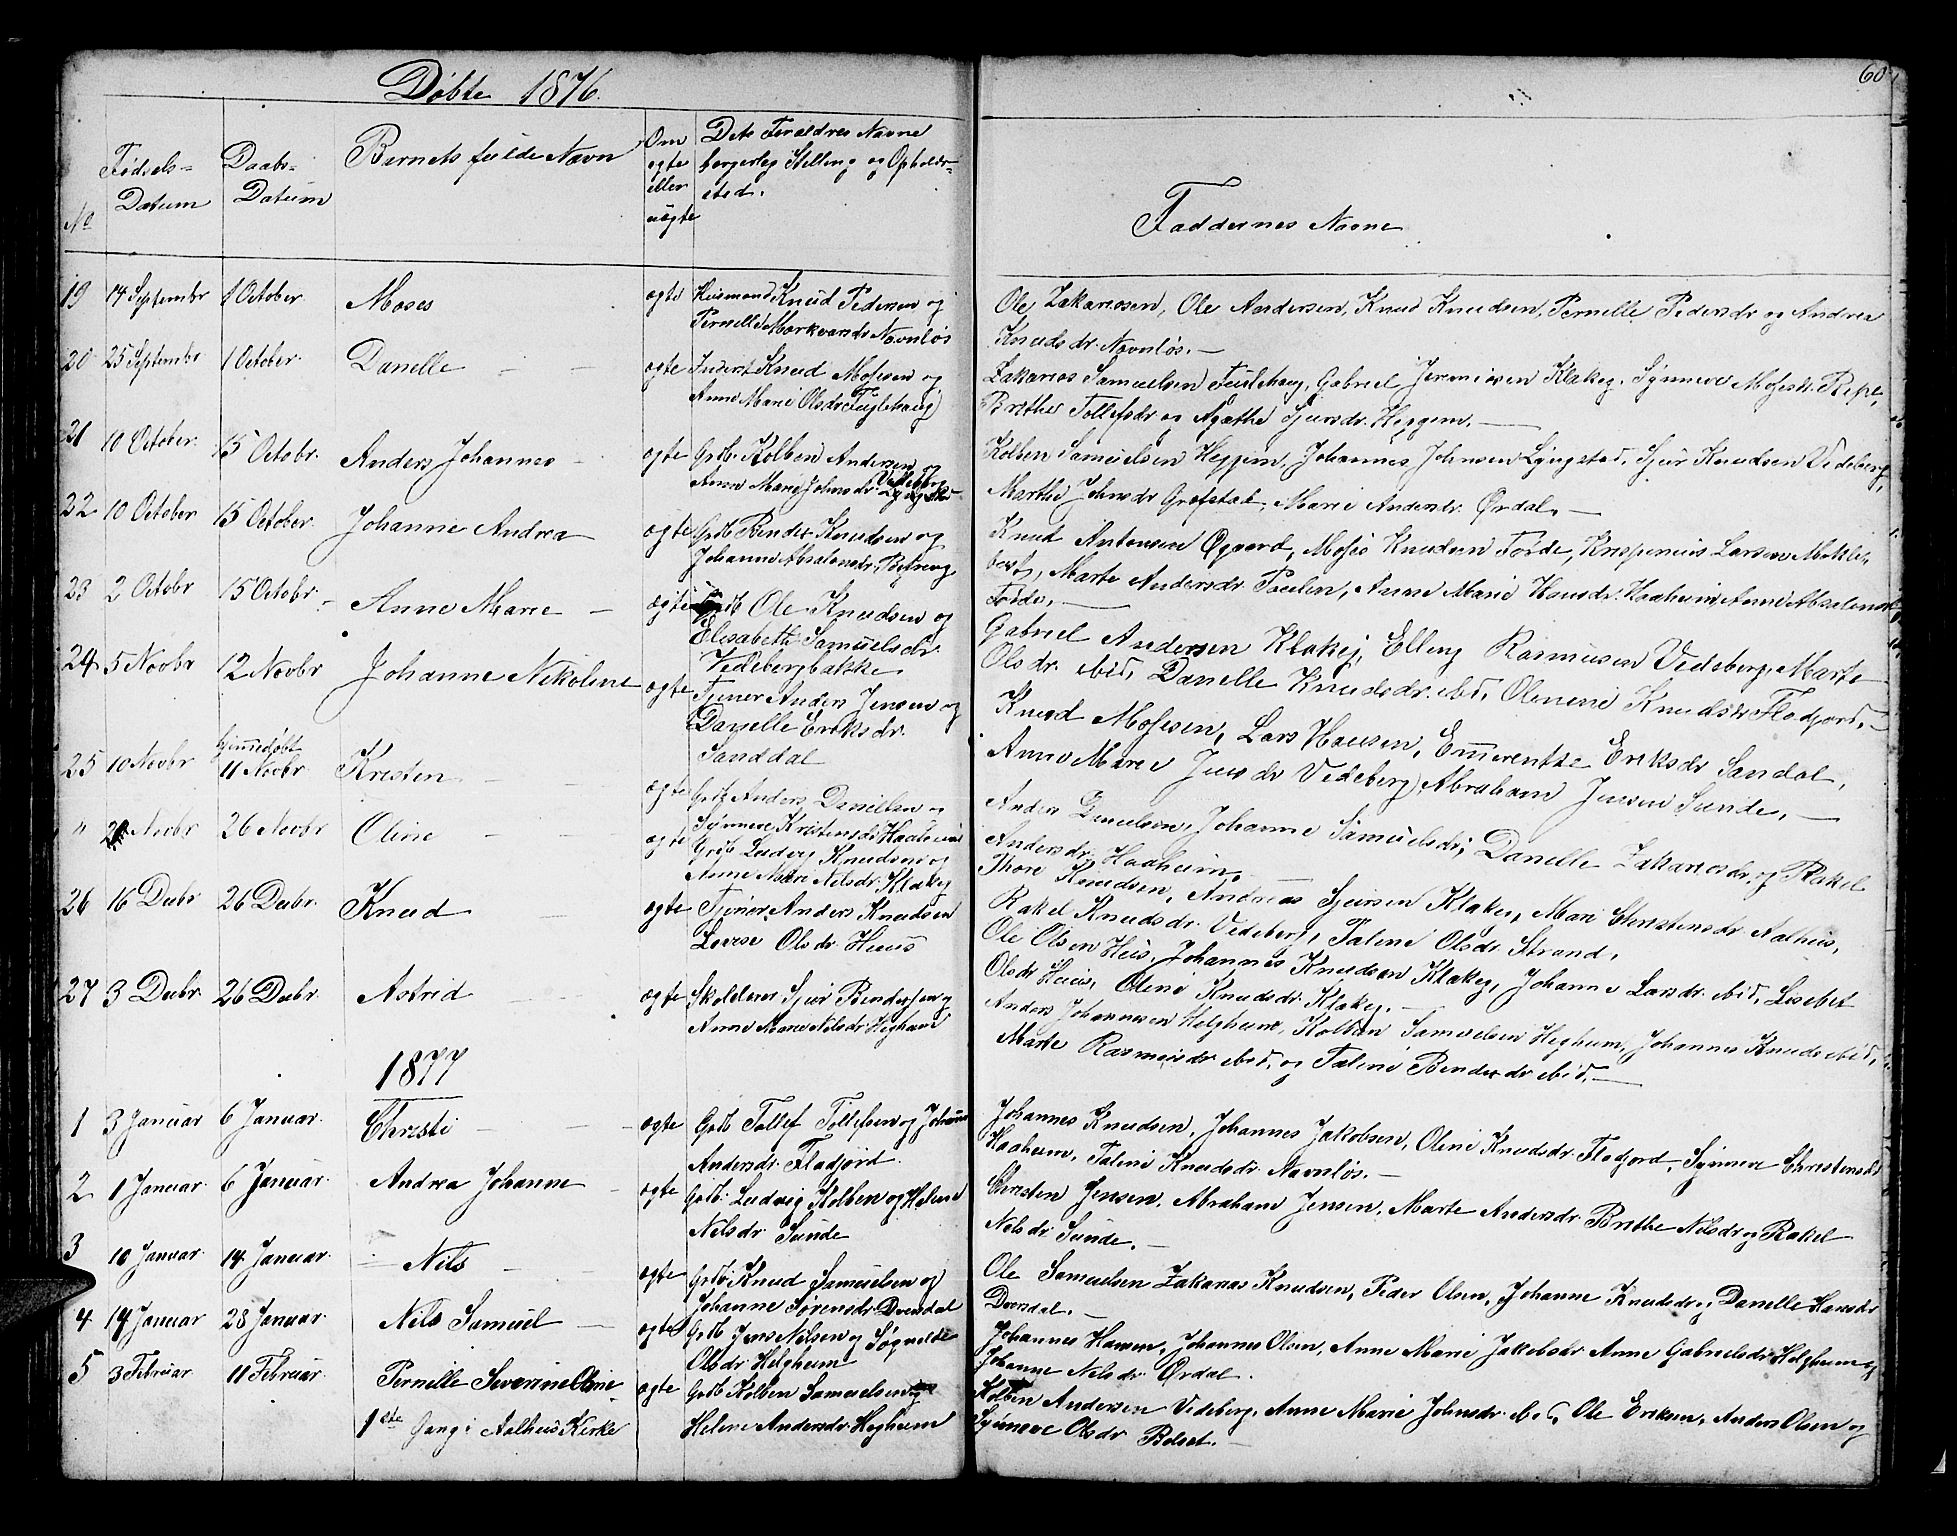 Döbte 1876.
60
No
Födsels-
Datum
Daabs-
Datum
Barnets fulde Navn
Om
ægte
eller
uægte
Dets Forældres Navne
borgerlig Stilling og Opholds-
sted.
Faddernes Navne
19 14 Septembr 1 October. Moses ægte Huusmand Knud Pedersen og
Pernille Markvardsdr Navnlös
Ole Zakariasen, Ole Andersen, Knud Knudsen, Pernille Pedersdr og Andrea
Knudsdr. Navnlös. —
20 25 Septembr 1 October. Danelle ægte Inderst Knud Mosesen og
Anne Marie Olsdr Fuglehaug
Zakarias Samuelsen Fuglehaug, Gabriel Jeremiasen Klakeg, Synneve Mosesdr.
Brithe Tollefsdr og Agathe Sjursdr. Heggem. —
21 10 October. 15 Octobr. Anders Johannes ægte Grdb. Kolben Andersen
Anne Marie Johnsdr Vedeberg
Kolben Samuelsen Heggem, Johannes Johnsen Ljugstad, Sjur Knudsen Vedeberg,
Marthe Johnsdr Grøfstad, Marie Andersdr. Ørdal. —
22 10 October 15 October. Johanne Andrea ægte Grdb Bendix Knudsen og
Johanne Absalonsdr.
Knud Antonsen Øgaard, Moses Knudsen Förde, Larsen Mykle-
bost, Marte Andersdr. Paulen, Anne Marie Hansdr. Haaheim, Anne Absalonsdr
Förde. —
23 2 Octobr 15 Octobr. Anne Marie ægte Grdb Ole Knudsen og
Elisabeth Samuelsdr.
Vedebergbakke
Gabriel Andersen Klakeg, Elling Rasmusen Vedeberg, Marte
Olsdr. ibid, Danelle Knudsdr. ibid, Olene Knudsdr Flodjord. —
24 5 Novbr 12 Novbr Johanne Nikoline ægte Tjener Anders Jensen og
Danelle Eriksdr.
Sanddal
Knud Mosesen, Lars Hansen, Emerentze Eriksdr Sandal,
Anne Marie Jensdr Vedeberg, Abraham Jensen Sunde. —
25 10 Novbr hjemmedøbt
11 Novbr Kristen ægte Grdb Anders Danielsen og
Synneve Kristensdr Haaheim
Anders Danielsen, Johanne Samuelsdr, Danelle Zakariasdr. og Rakel
Andersdr. Haaheim. —
" Novbr 26 Novbr Oline ægte Grdb Ludvig Knudsen og
Anne Marie Nilsdr. Klakeg
Thore Knudsen, Andreas Sjursen Klakeg, Mari Christensdr Aalhus,
Rakel Knudsdr. Vedeberg, Taline Olsdr Strand.
26 16 Decbr 26 Decbr. Knud ægte Tjener Anders Knudsen
Lovise Olsdr. Huus
Ole Olsen Huus, Johannes Knudsen Klakeg, Johanne Larsdr. ibid, Lisebet
Olsdr Huus, Oline Knudsdr. Klakeg. —
27 3 Decbr. 26 Decbr. Astrid ægte Skolelærer Sjur Bendixsen og
Anne Marie Nilsdr. Hegheim
Anders Johannesen Helgheim, Kolben Samuelsen Hegheim, Johannes Knuds. ibid,
Marte Rasmusdr. ibid. og Taline Bendixdr ibid. —
1877
1 3 Januar 6 Januar. Christi ægte Grdb Tollef Tollefsen og Johanne
Andersdr. Flodjord.
Johannes Knudsen, Johannes Jakobsen, Oline Knudsdr. Flodjord, Synneve Christensdr
Haaheim, Taline Knudsdr. Navnlös. —
2 1 Januar. 6 Januar. Andrea Johanne ægte Grdb. Ludvig Kolben og Helene
Nelsdr Sunde
Christen Jensen, Abraham Jensen, Marte Andersdr. Brithe Nilsdr og Rakel
Nelsdr Sunde. —
3 10 Januar. 14 Januar. Nils ægte Grdb. Knud Samuelsen og
Johanne Sörensdr. Dvergdal
Ole Samuelsen Zakarias Knudsen, Peder Olsen, Johanne Knudsdr og Danelle Hansdr
Dvergdal. —
4 19 Januar 28 Januar. Nils Samuel ægte Grdb Jens Nilsen og Søgnelde
Olsdr Helgheim
Johannes Hansen, Johannes Olsen, Anne Marie Jakobsdr Anne Gabrielsdr Helgheim og
Johanne Nelsdr. Ørdal.
5 3 Februar 11 Februar. Pernille Severine Oline ægte Grdb Kolben Samuelsen og
Helene Andersdr. Hegheim
Kolben Andersen Vedeberg, Anne Marie Johnsdr. ibid, Ole Eriksen, Anders Olsen og
Synneve Olsdr Belset. —
1ste Gang i Aalhus Kirke